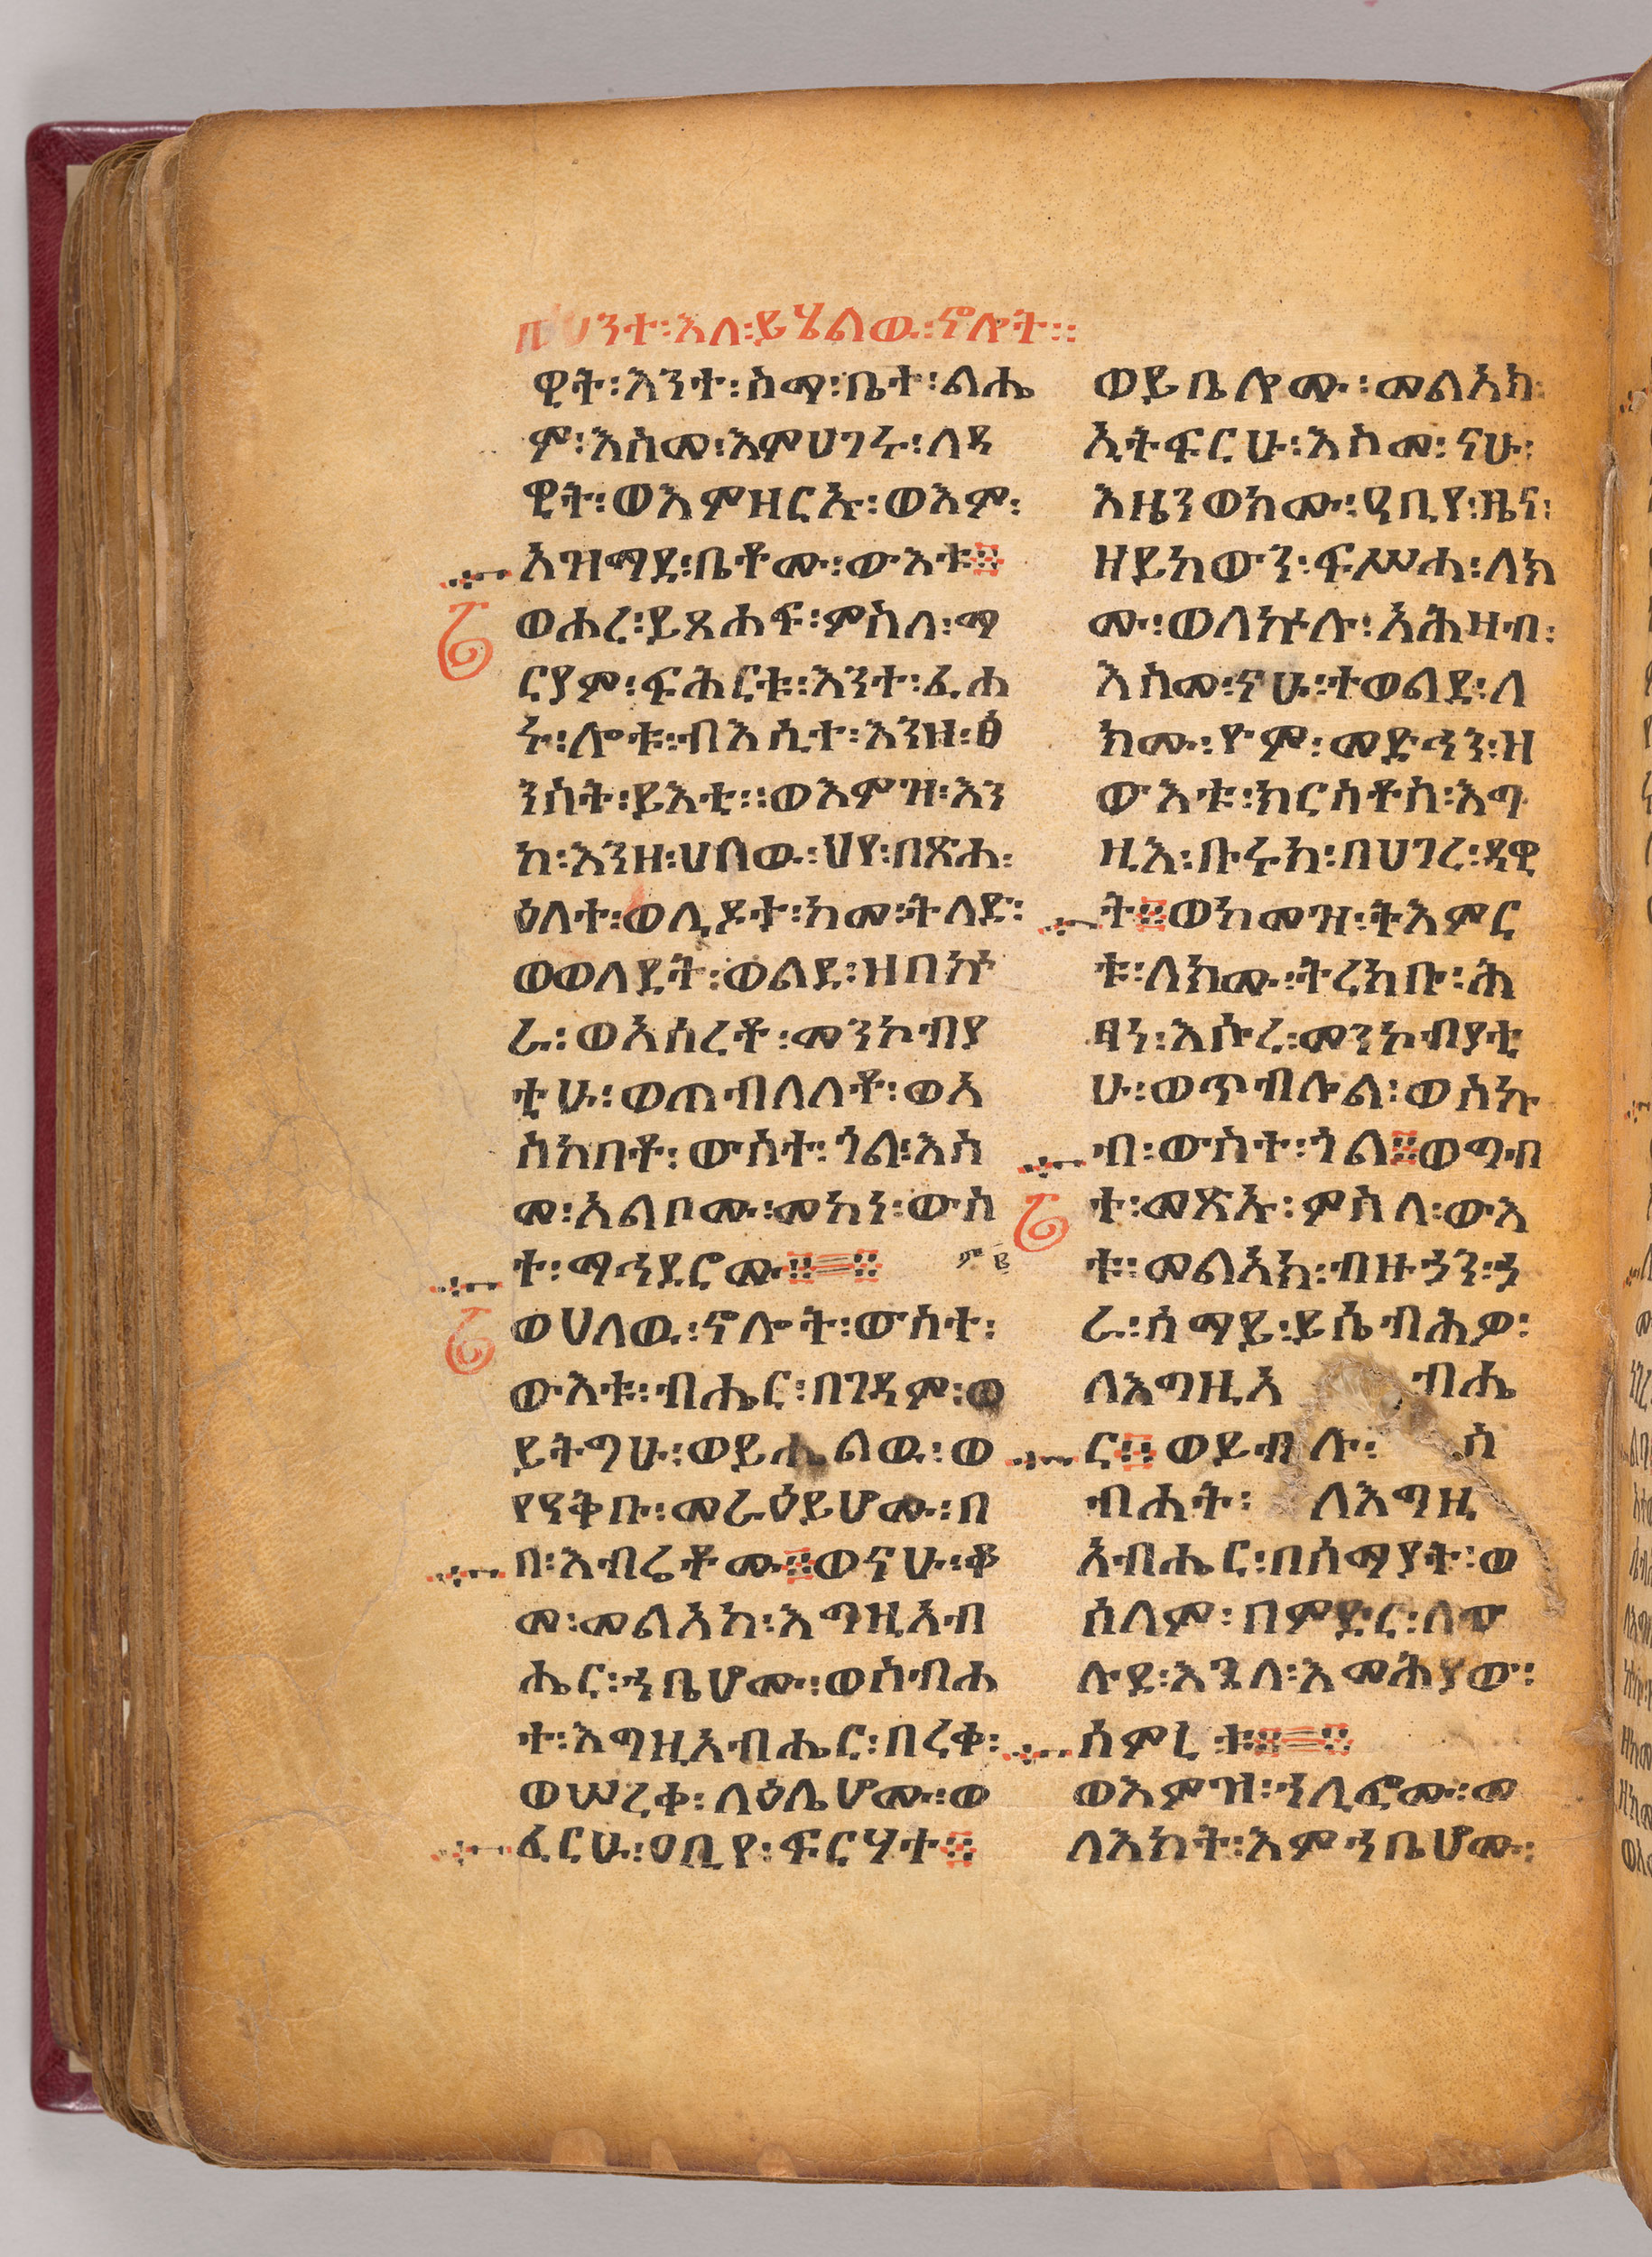 በ፡ህንተ፡እለ፡ይሄልው፡ኖሎት።
ዊት፡እንተ፡ስማ፡ቤተ፡ልሔ
ም፡እስመ፡እምሀገሩ፡ለዳ
ዊት፡ወእምዘርኡ፡ወእም፡
አዝማደ፡ቤቶሙ፡ውእቱ፨
ወሐረ፡ይጸሐፍ፡ምስለ፡ማ
ርያም፡ፍሕርቱ፡እንተ፡ፈሐ
ሩ፡ሎቱ፡ብእሲተ፡እንዘ፡ፅ
ንስት፡ይእቲ።ወእምዝ፡እን
ከ፡እንዘ፡ሀለው፡ህየ፡በጽሐ፡
ዕለተ፡ወሊዶታ፡ከመ፡ትለድ፡
ወወለደት፡ወልደ፡ዘበኵ
ራ፡ወአሰረቶ፡መንኮብያ
ቲሁ፡ወጠብለለቶ፡ወአ
ስከበቶ፡ውስተ፡ጎል፡እስ
መ፡አልቦሙ፡መከነ፡ውስ
ተ፡ማኅደሮሙ፨፨
ወሀለዉ፡ኖሎት፡ውስተ፡
ውእቱ፡ብሔር፡በገዳም፡ወ
ይትግሁ፡ወይሔልዉ፡ወ
የዓቅቡ፡መራዕይሆሙ፡በ
በ፡እብሬቶሙ፨ወናሁ፡ቆ
መ፡መልአከ፡እግዚአብ
ሔር፡ኀቤሆሙ፡ወስብሐ
ተ፡እግዚአብሔር፡በረቀ፡
ወሠረቀ፡ለዕሌሆሙ፡ወ
ፈርሁ፡ዐቢየ፡ፍርሃተ፨
ወይቤሎሙ፡መልአክ፡
ኢትፍርሁ፡እስመ፡ናሁ፡
እዜንወክሙ፡ዓቢየ፡ዜና፡
ዘይከውን፡ፍሥሓ፡ለክ
ሙ፡ወለኵሉ፡አሕዛብ፡
እስመ፡ናሁ፡ተወልደ፡ለ
ክሙ፡ዮም፡መድኅን፡ዝ
ውእቱ፡ክርስቶስ፡እግ
ዚእ፡ቡሩክ፡በሀገረ፡ዳዊ
ት፨ወከመዝ፡ትእምር
ቱ፡ለክሙ፡ትረክቡ፡ሕ
ፃነ፡እሱረ፡መንኮብያቲ
ሁ፡ወጥብሉል፡ወስኩ
ብ፡ውስተ፡ጎል፨ወግብ
ተ፡መጽኡ፡ምስለ፡ውእ
ቱ፡መልአክ፡ብዙኃን፡ኃ
ራ፡ሰማይ፡ይሴብሕዎ፡
ለእግዚአብሔ
ር፨ወይብሉ፡ስ
ብሐት፡ለእግዚ
አብሔር፡በሰማያት፡ወ
ሰላም፡በምድር፡ለው
ሉደ፡እጓለ፡እመሕያው፡
ሰምረቱ፨፨
ወእምዝ፡ኀሊፎሙ፡መ
ላእክት፡እምኀቤሆሙ፡